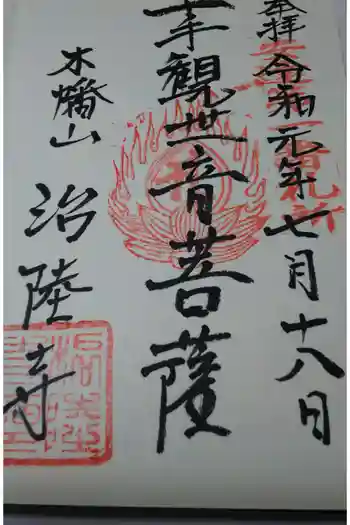 奉拝 令和元年七月十八日
千手観世音菩薩
木幡山 治陸寺